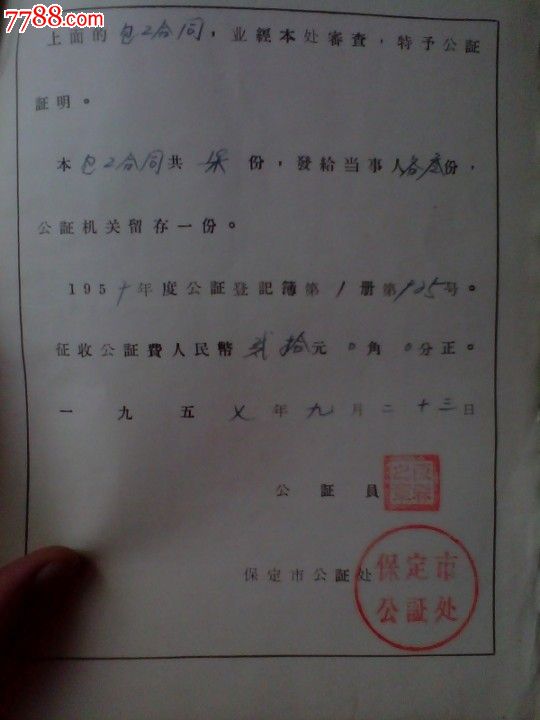 7788.com
上面的包工合同，业經本处審查，特予公証
証明。
本包工合同共 份，發給当事人各 份，
公証机关留存一份。
195 年度公証登記簿第1册第125号。
征收公証費人民幣貳拾元0角0分正。
一九五七年九月二十三日
公証員
保定市公証处
保定市
公証处